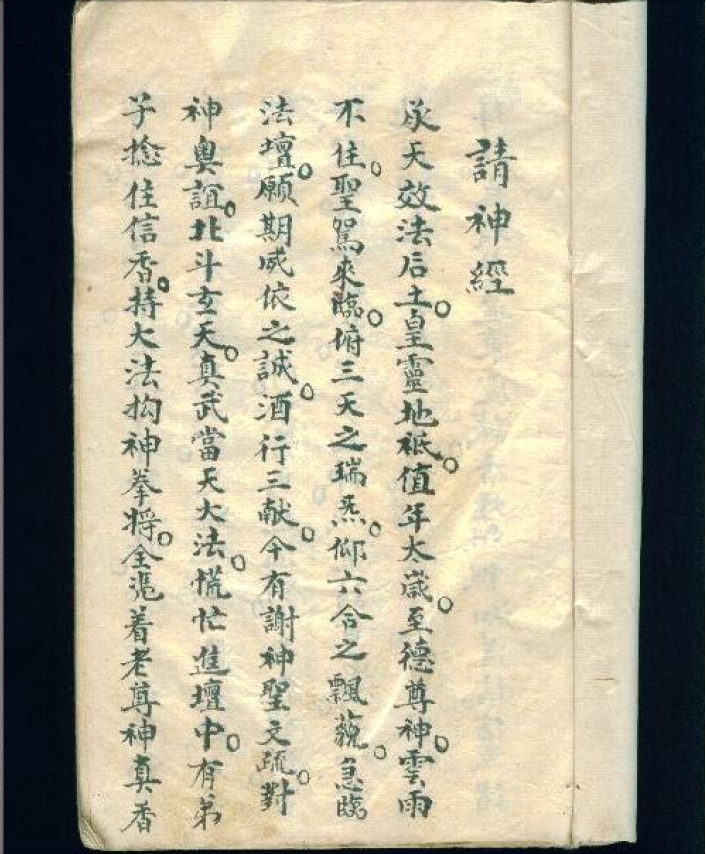 請神經
承天效法后土。皇靈地祇。值年太歲。至德尊神。雲雨
不住。聖駕來臨。俯三天之瑞炁。仰六合之飄藐。急臨
法壇。願期咸依之誠。酒行三献。今有謝神聖文疏。對
神輿誼。北斗玄天。真武當天大法。慌忙進壇中。有弟
子捻住信香。持大法抅神拳將。全凴着老尊神真香